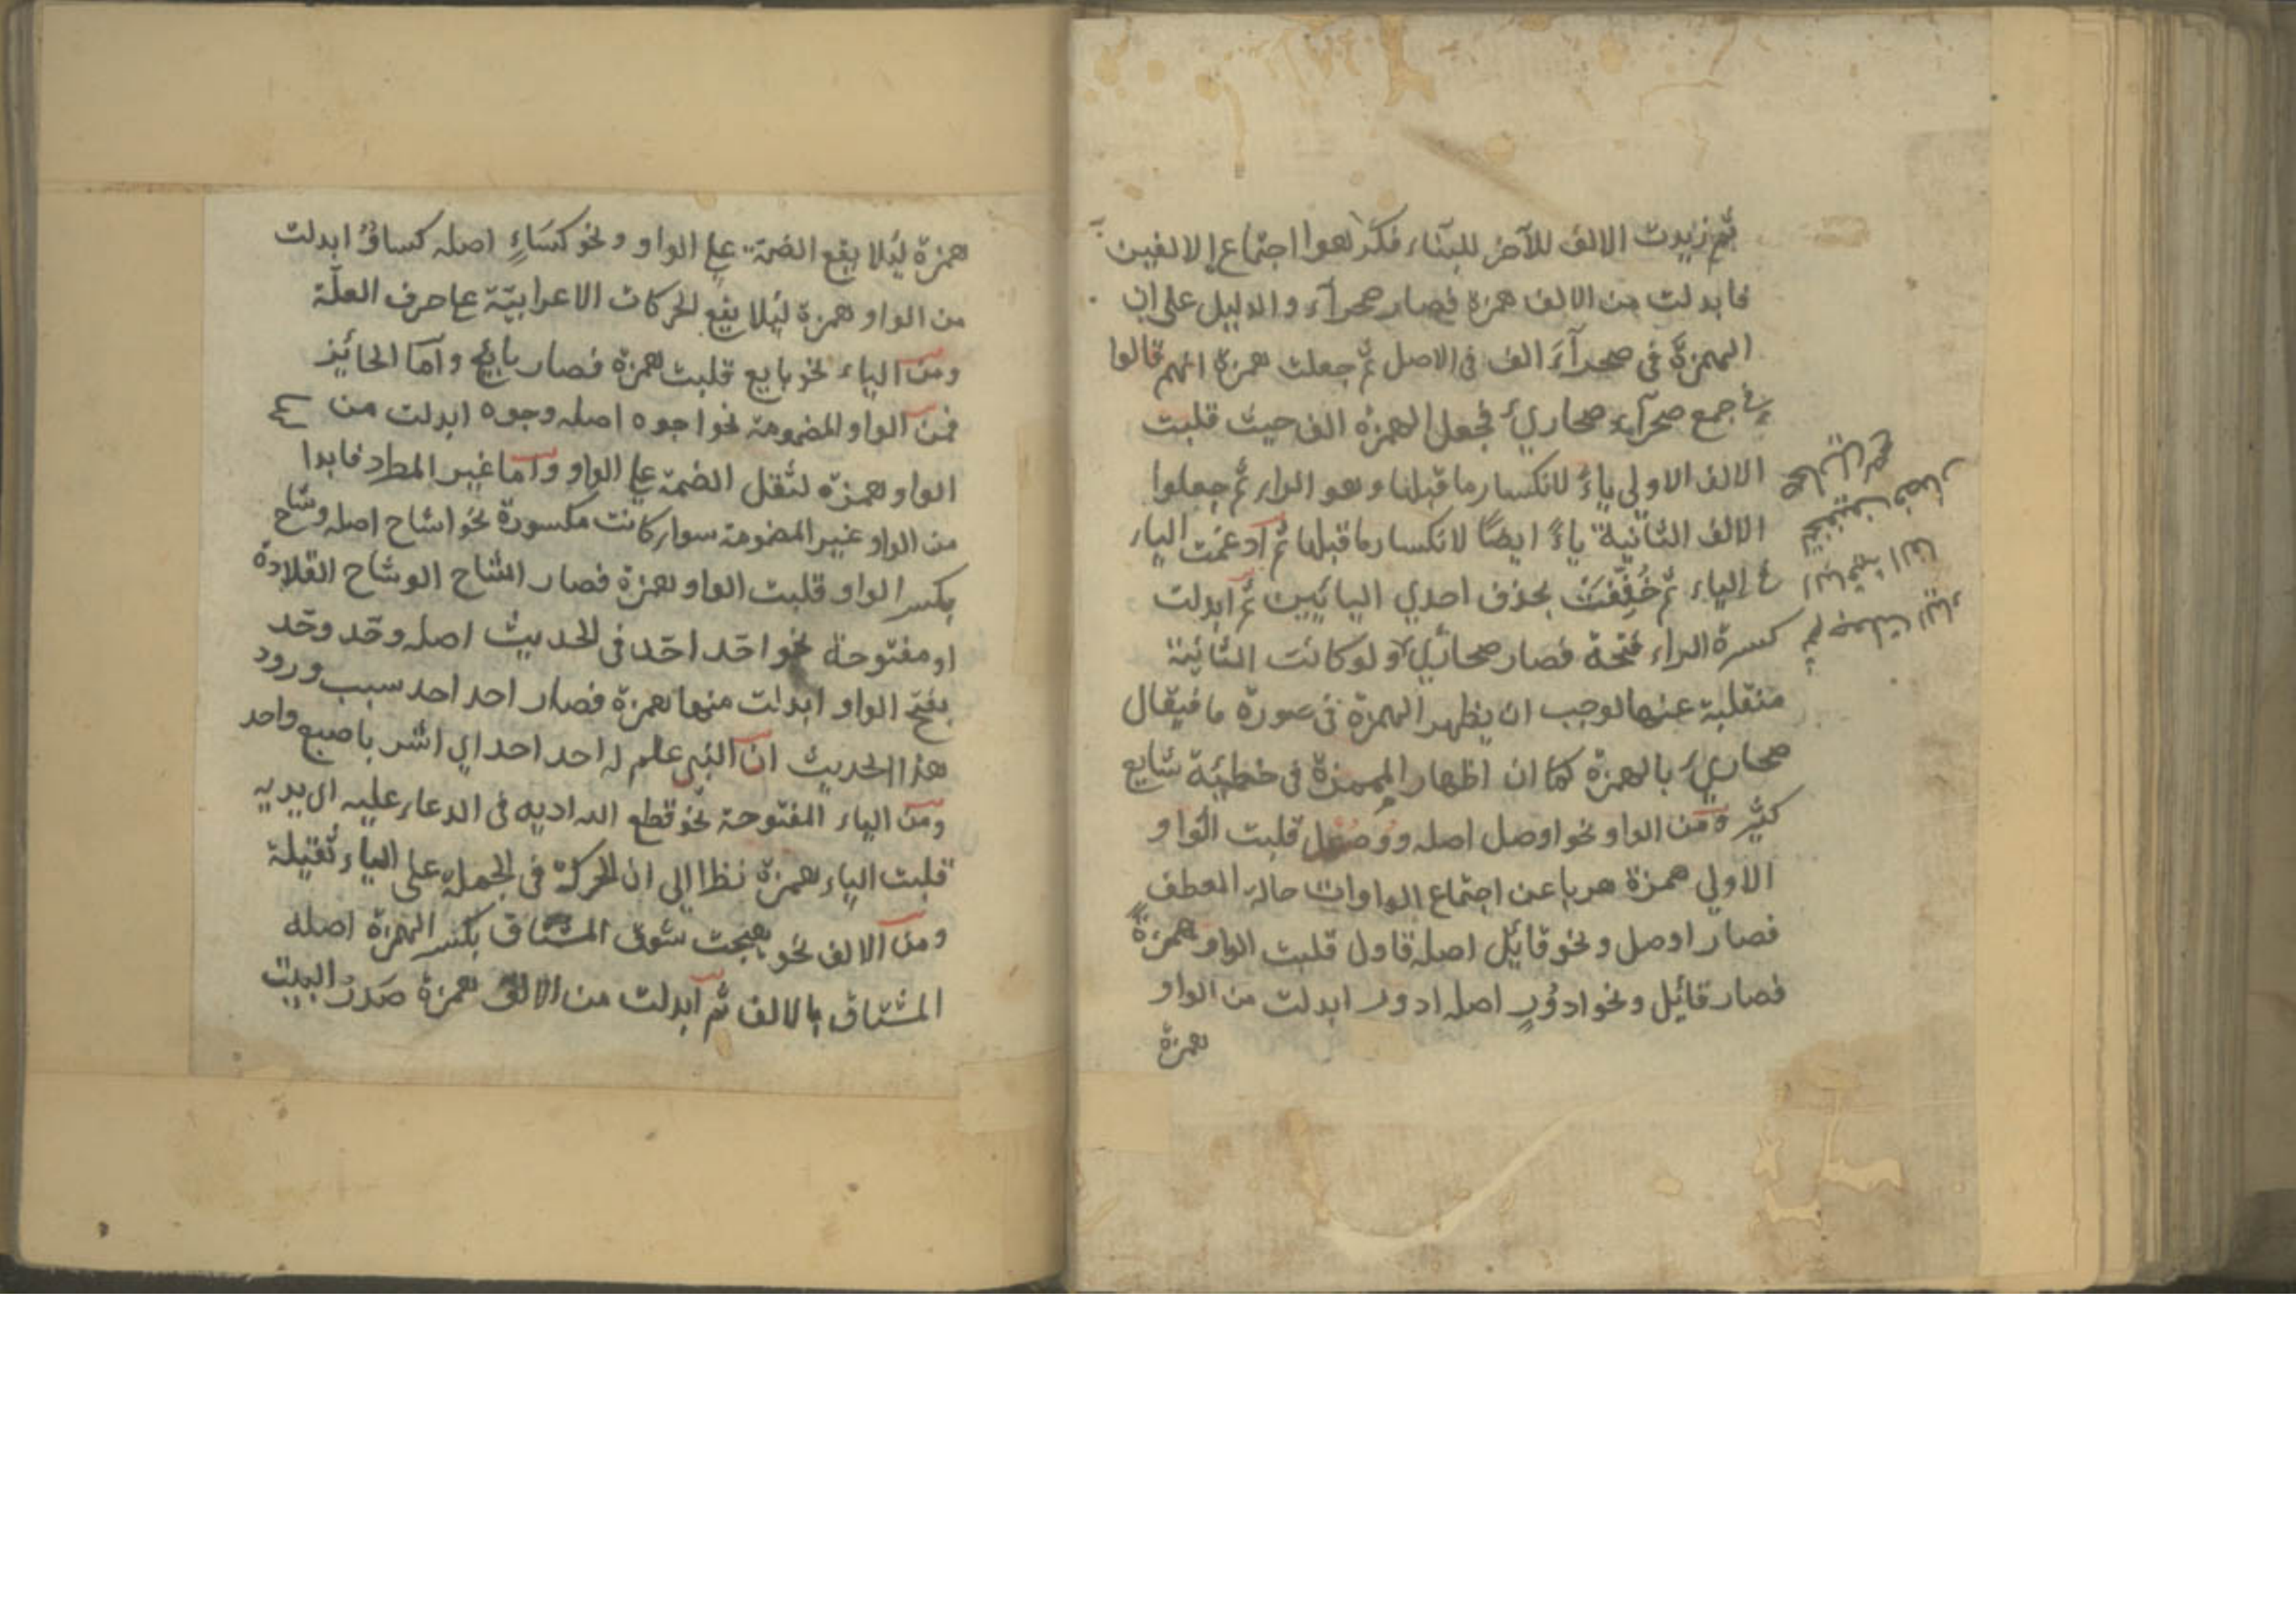 ثم زيدت الالف للآخر للبناء فكرهوا اجتماع الالفين
فابدلت من الالف همزة فصار صحرآء والدليل على ان
الهمزة فى صحرآءَ الف فى الاصل ثم جعلت همزة انهم قالوا
فى جمع صحرآء صحاري فجعل الهمزة الف حيث قلبت
الالف الاولي ياءً لانكسار ما قبلها وهو الراء ثم جعلوا
الالف الثانية ياءً ايضًا لانكسار ما قبلها ثم ادغمت الياء
فى الياء ثم خُفِّفَتْ بحذف احدي اليائين ثم ابدلت
كسرة الراء فتحة فصار صحاري ولو كانت الثانية
منقلبة عنها لوجب ان يظهر الهمزة فى صورة ما فيقال
صحاريء بالهمزة كما ان اظهار الهمزة فى خطيئة شايع
كثير ومن الواو نحو اوصل اصله ووصل قلبت الواو
الاولي همزة هربا عن اجتماع الواوات حالة العطف
فصار اوصل ونحو قائل اصله قاول قلبت الواو همزة
فصار قائل ونحو ادوُر اصله ادور ابدلت من الواو
همزة
ثم جعلت الياء
الفا
فصار
صحاري
همزة لئلا يقع الضمة على الواو ونحو كسَاءٍ اصله كساوٌ ابدلت
من الواو همزة لئلا يقع الحركات الاعرابيّة عا حرف العلّة
ومن الياء نحو بايع قلبت همزة فصار بائع وآما الجائز
فمن الواو المضمومة نحو اجوه اصله وجوه ابدلت من
الواو همزة لثقل الضمة على الواو وآما غير المطرد فابدا
من الواو غير المضمومة سواء كانت مكسورة نحو اشاح اصله وشاح
بكسر الواو قلبت الواو همزة فصار اشاح الوشاح القلادة
او مفتوحة نحو احّد احّد فى الحديث اصله وحّد وحّد
بفتح الواو ابدلت منها همزة فصار احد احد سبب ورود
هذا الحديث ان النبى علم له احد احد اي اشر باصبع واحد
ومن الياء المفتوحة نحو قطع الله اديه فى الدعاء عليه اى يديه
قلبت الياء همزة نظرا الى ان الحركة فى الجملة على الياء ثقيلة
ومن الالف نحو هيجت شوق المشتاق بكسر الهمزة اصله
المشتاق بالالف ثم ابدلت من الالف همزة صَدرُ البيت